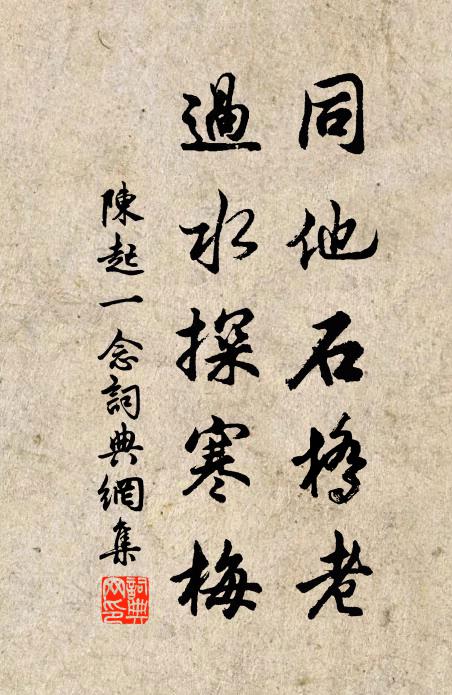 同他石橋老
過水探寒梅
陳起一念詞典網集
詞典
网印